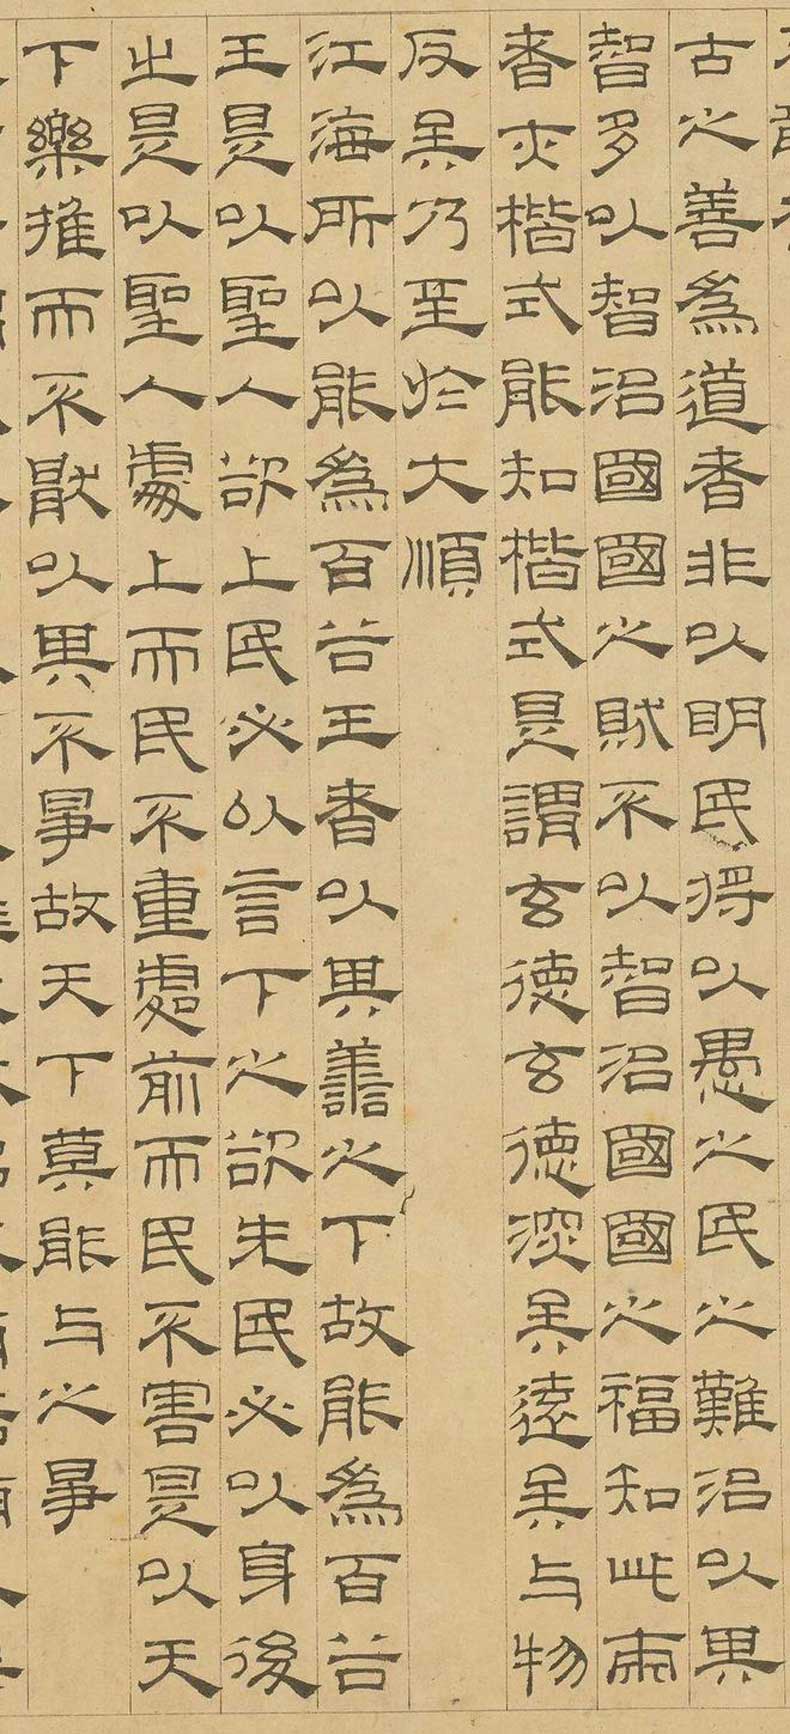 古之善爲道者非以明民将以愚之民之難治以其
智多以智治國國之賊不以智治國國之福知此兩
者亦楷式能知楷式是謂玄徳玄徳深矣遠矣与物
反矣乃至於大順
江海所以能爲百谷王者以其善之下故能爲百谷
王是以聖人欲上民必以言下之欲先民必以身後
之是以聖人處上而民不重處前而民不害是以天
下樂推而不猒以其不爭故天下莫能与之爭